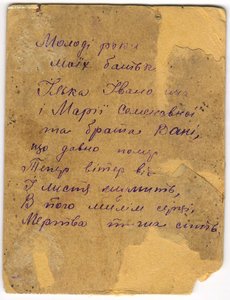 Молоді роки
моїх батьків
Ілька Івановича
і Марії Семенівної
та брата Вані,
що давно помер
Тепер вітер віє
І листя шумить,
В того милім серці
Мертва